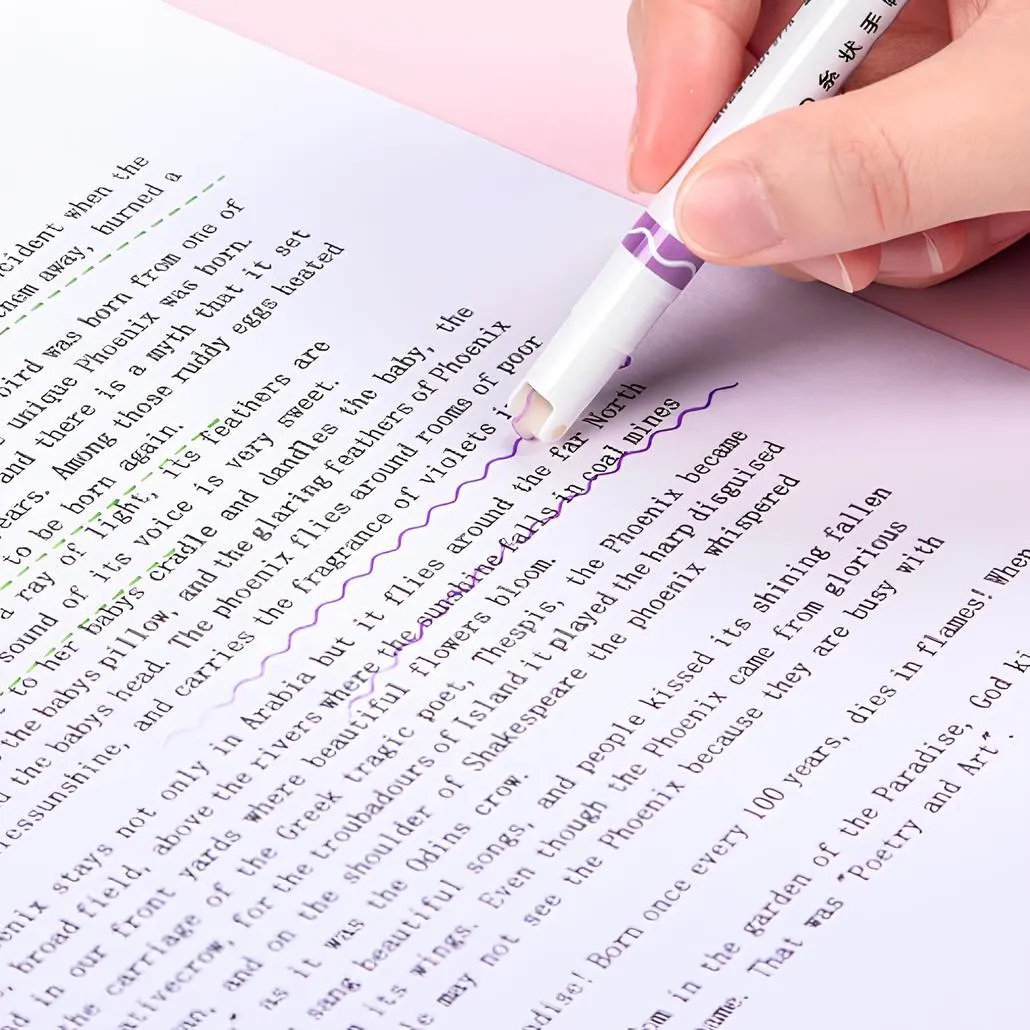 糸状手
incident when the
them away, burned a
bird was born from one of
unique Phoenix was born.
and there is a myth that it set
years. Among those ruddy eggs heated
to be born again.
a ray of light, its feathers are
sound of its voice is very sweet.
to her babys cradle and dandles the baby, the
the babys pillow, and the glaring feathers of Phoenix
the babys head. The phoenix flies around rooms of poor
lessunshine, and carries the fragrance of violets
enix stays not only in Arabia but it flies around the far North
broad field, above the rivers where the sunshine falls in coal mines
d in our front yards where beautiful flowers bloom.
the carriage of the Greek tragic poet, Thespis, the Phoenix became
ativecrow, for the troubadours of Island it played the harp disguised
an, and on the shoulder of Shakespeare the phoenix whispered
as it was the Odins crow.
sang beautiful songs, and people kissed its shining fallen
its wings. Even though the Phoenix came from glorious
le may not see the Phoenix because they are busy with
adise! Born once every 100 years, dies in flames! When
om in the garden of the Paradise, God ki
name. That was "Poetry and Art".